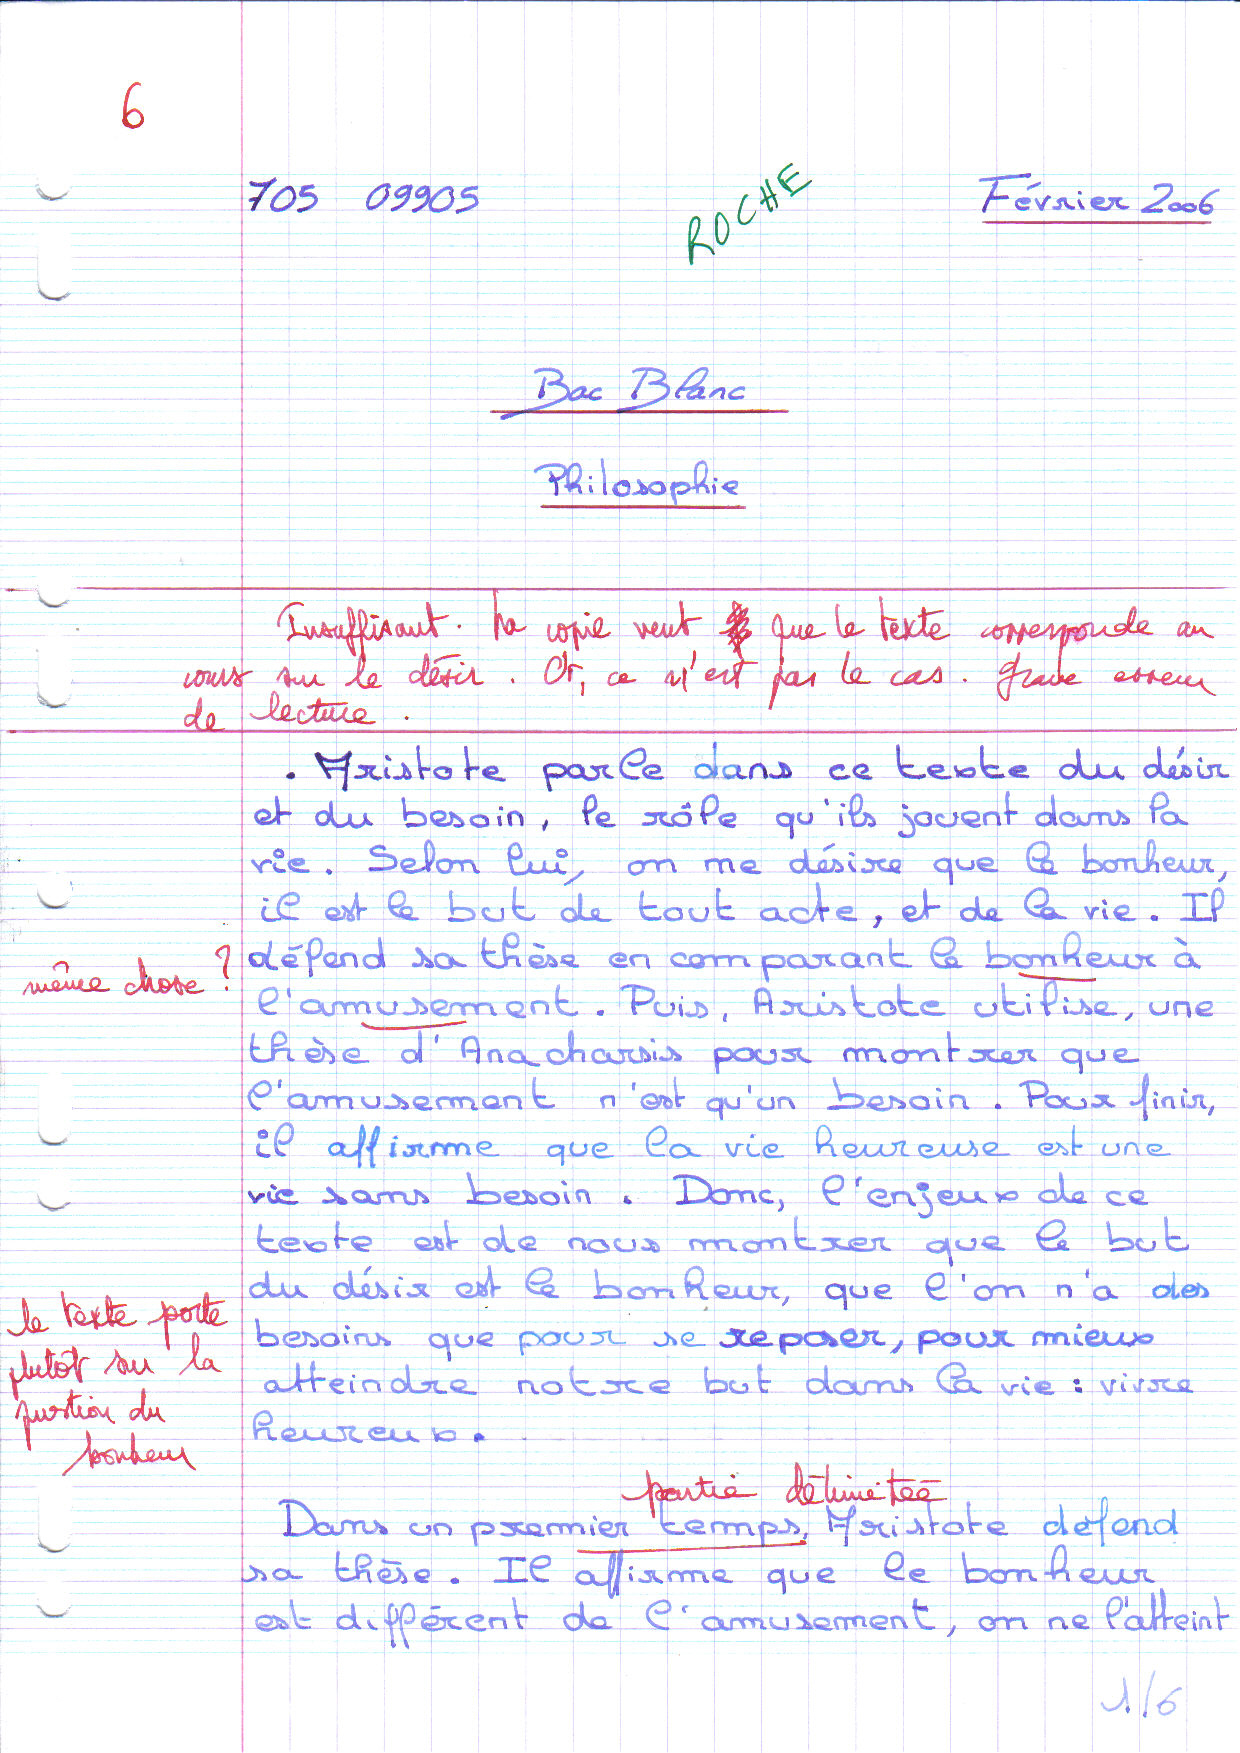 6
705 09905
ROCHE
Février 2006
Bac Blanc
Philosophie
Insuffisant. La copie veut que le texte corresponde au
cours sur le désir. Or, ce n'est pas le cas. Grave erreur
de lecture.
. Aristote parle dans ce texte du désir
et du besoin, le rôle qu'ils jouent dans la
vie. Selon lui, on ne désire que le bonheur,
il est le but de tout acte, et de la vie. Il
défend sa thèse en comparant le bonheur à
même chose ?
l'amusement. Puis, Aristote utilise, une
thèse d'Anacharsis pour montrer que
l'amusement n'est qu'un besoin. Pour finir,
il affirme que la vie heureuse est une
vie sans besoin. Donc, l'enjeux de ce
texte est de nous montrer que le but
du désir est le bonheur, que l'on n'a des
besoins que pour se reposer, pour mieux
atteindre notre but dans la vie : vivre
heureux.
le texte porte
plutôt sur la
question du
bonheur
partie délimitée
Dans un premier temps, Aristote défend
sa thèse. Il affirme que le bonheur
est différent de l'amusement, on ne l'atteint
1/6